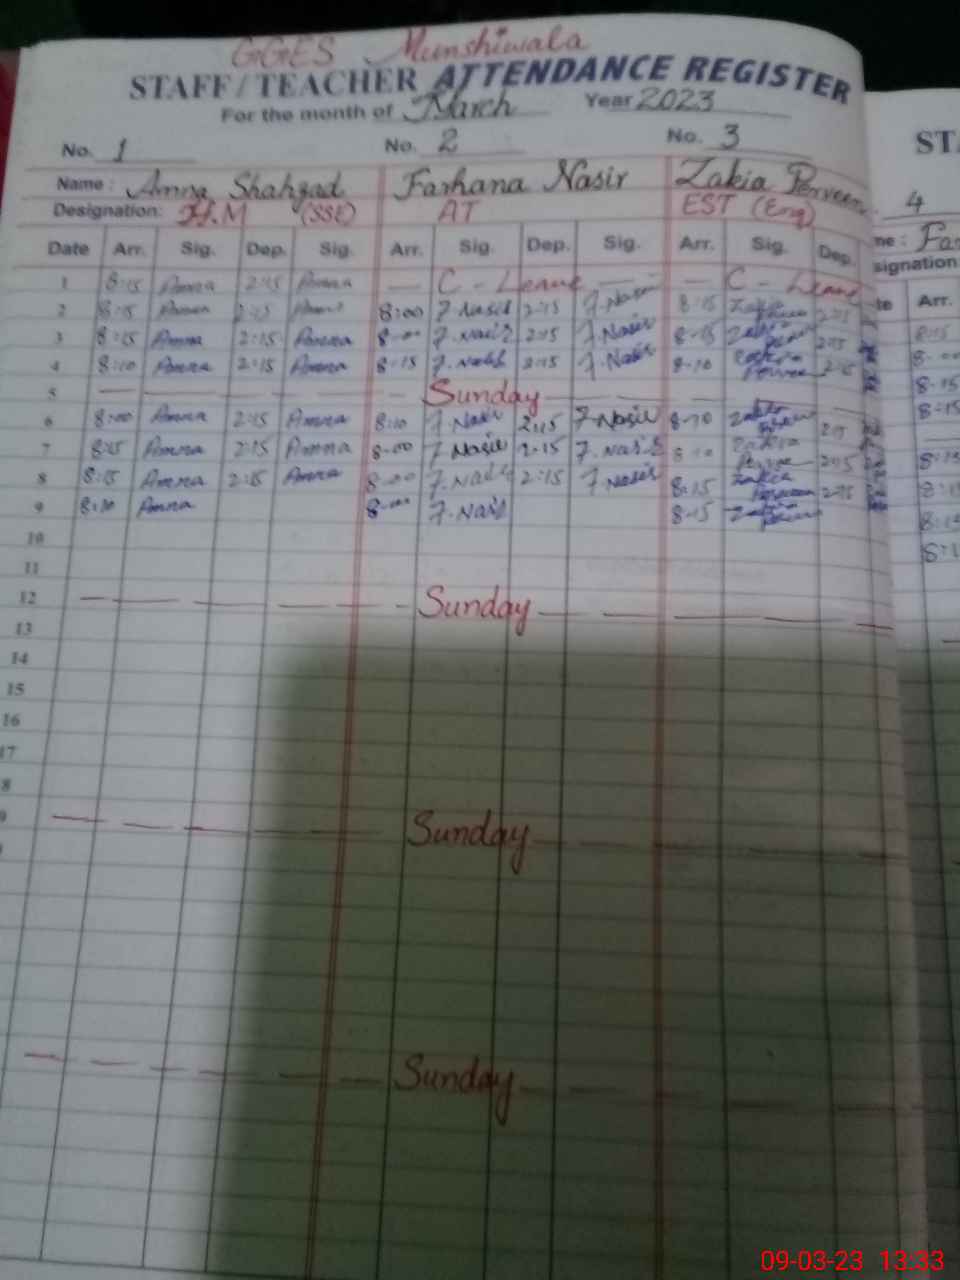 GGES Munshiwala
STAFF / TEACHER ATTENDANCE REGISTER
For the month of March Year 2023
No. 1 No. 2 No. 3
Name : Amna Shahzad Farhana Nasir Zakia Perveen
Designation: H.M (SSE) AT EST (Eng)
Date Arr. Sig. Dep. Sig. Arr. Sig. Dep. Sig. Arr. Sig. Dep.
1 8:15 Amna 2:15 Amna — C - Leave — — C - Leave
2 8:15 Amna 2:15 Amna 8:00 F.Nasir 2:15 F.Nasir 8:15 Zakia Perveen 2:15
3 8:15 Amna 2:15 Amna 8-00 F.Nasir 2:15 F.Nasir 8-15 Zakia Perveen 2:15
4 8:10 Amna 2:15 Amna 8-15 F.Nasir 2:15 F.Nasir 8-10 Zakia Perveen 2:15
5 Sunday
6 8:00 Amna 2:15 Amna 8:10 F.Nasir 2:15 F.Nasir 8-10 Zakia 2:15
7 8:15 Amna 2:15 Amna 8-00 F.Nasir 2-15 F.Nasir 8-10 Zakia Perveen 2:15
8 8:15 Amna 2:15 Amna 8-00 F.Nasir 2:15 F.Nasir 8:15 Zakia Perveen 2:15
9 8:10 Amna 8-00 F.Nasir 8-15 Zakia Perveen
10
11
12 Sunday
13
14
15
16
17
8
9 Sunday
Sunday
ST
4
me : Far
signation
te Arr.
8:15
8-00
8-15
8:15
8:15
8:15
8:15
8:1
09-03-23 13:33